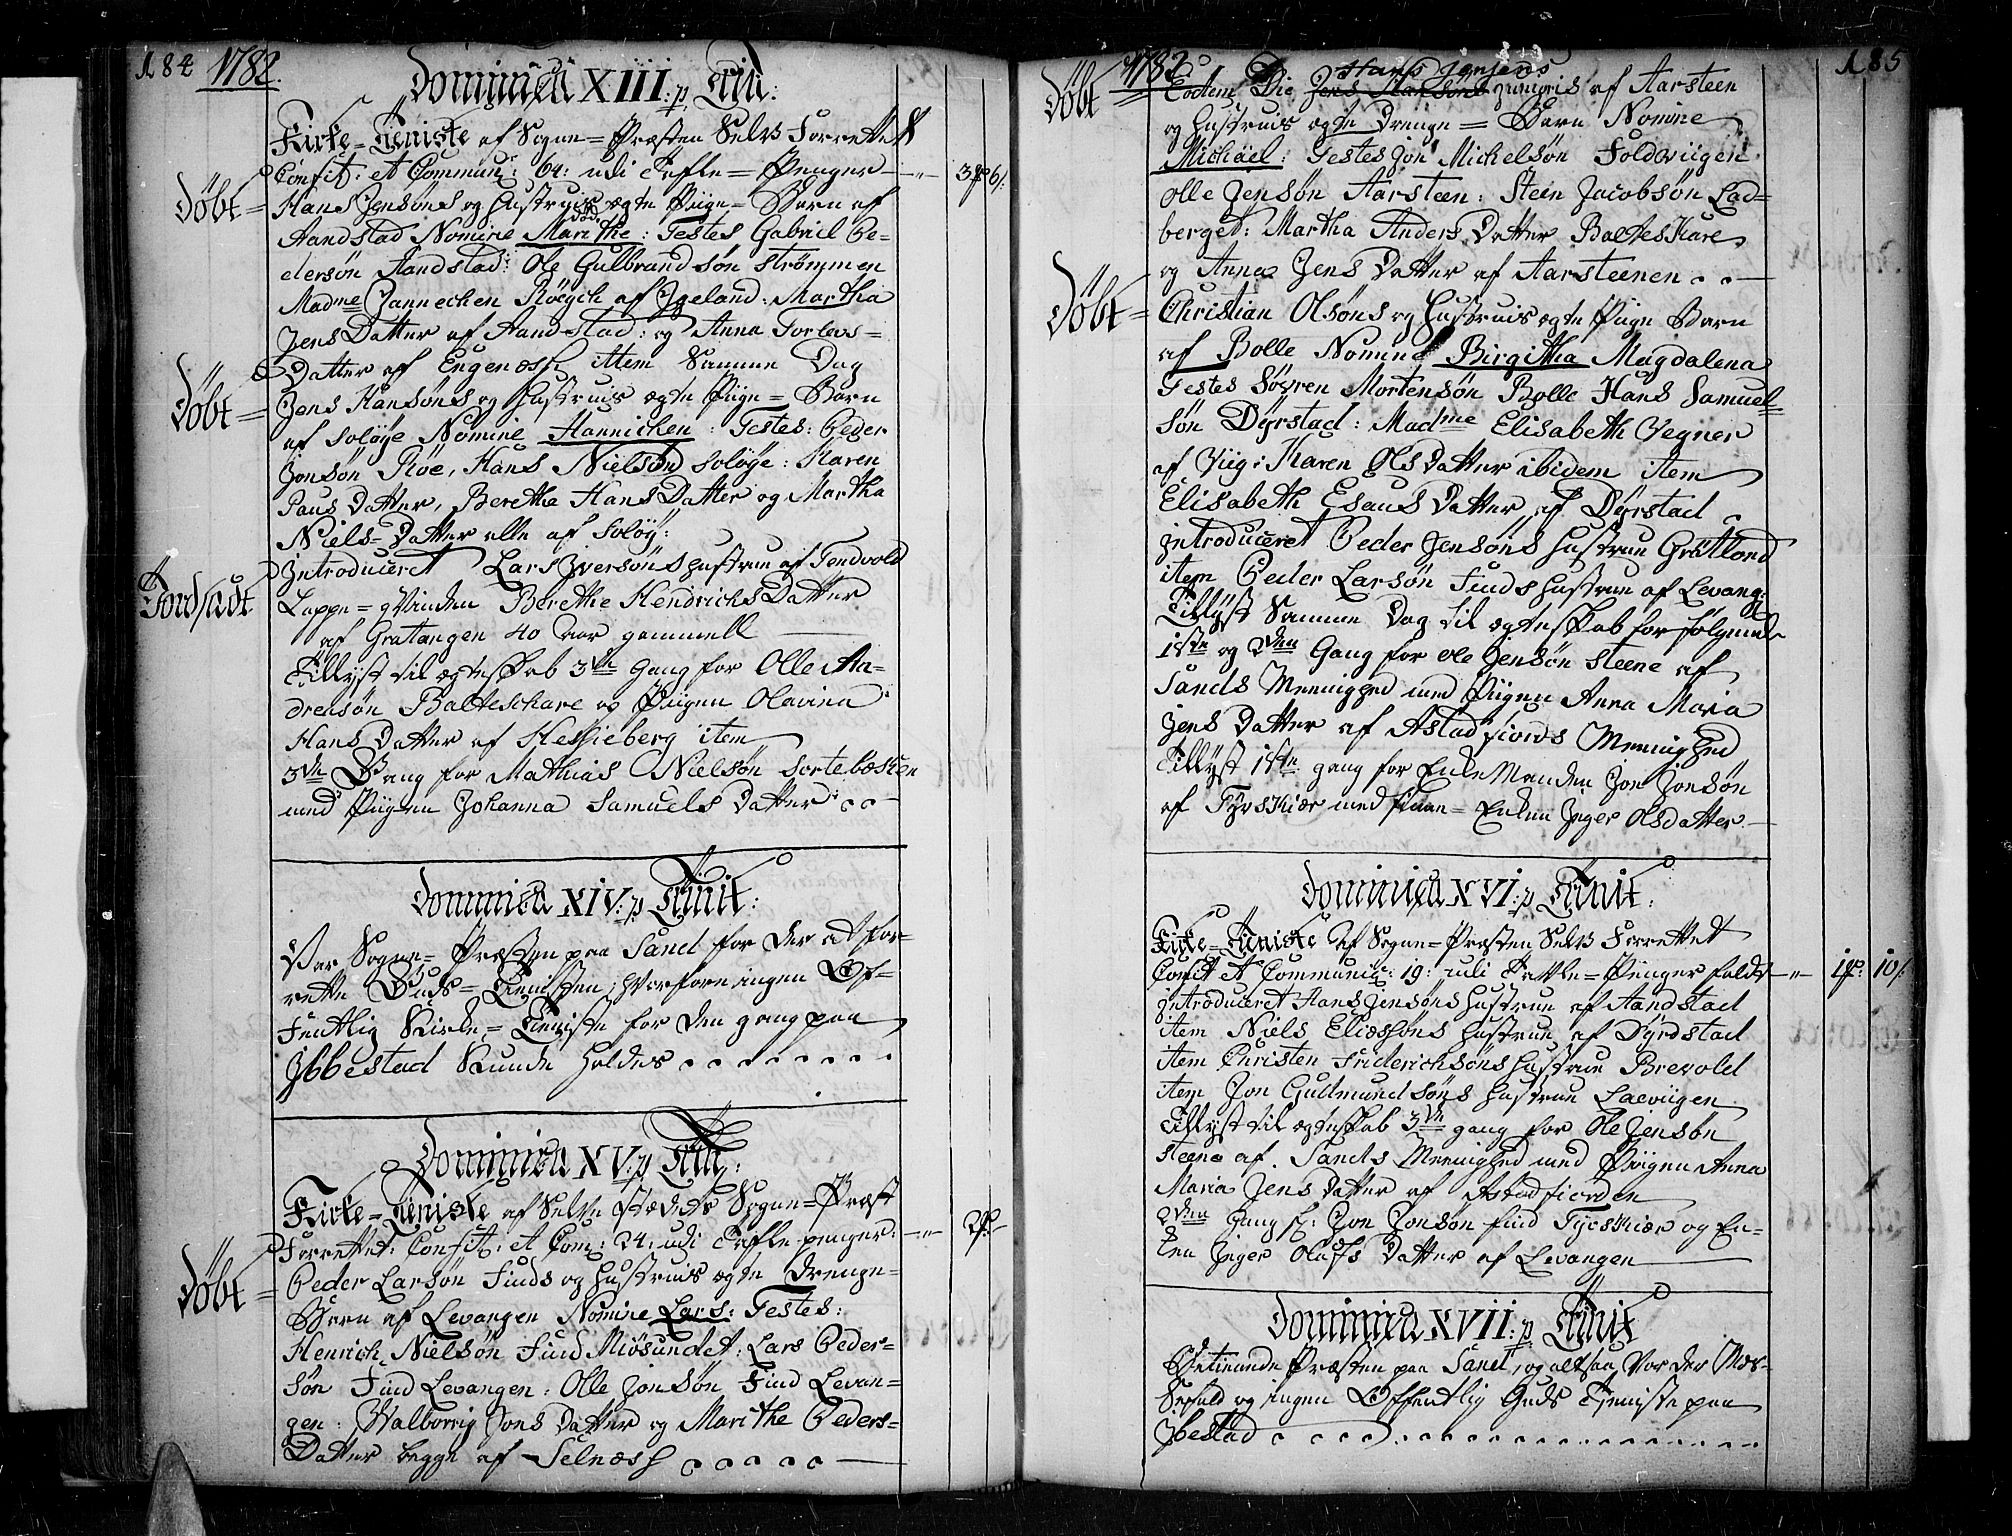 184 1782.
Dominica XIII: p Trin:
Kirke=Tieniste af Sogne=Præsten Selv Forrettet
Confit: et Commun: 64: udi Tafle=Penger — 3 6
Döbt = Hans Jensøns og Hustruis ægte Piige=Barn af
död.
Aandstad Nomine Marithe: Testes Gabriel Pe=
dersøn Aandstad: Ole Gulbrandsøn Strømmen
Madme Jannechen Röegch af Jgeland: Martha
Jens Datter af Aandstad: og Anna Torlevs=
Datter af Engeness item Samme Dag
Döbt = Jens Hansøns og Hustruis ægte Piige=Barn
af Soløye Nomine Hannichen: Testes: Peder
Jonsøn Röe, Hans Nielsøn Soløye: Karen
Paus Datter, Beretha Hans Datter og Martha
Niels=Datter alle af Soløy:
Introduceret Lars Iversøns Hustrue af Tendvold
Jordsadt Lappe=Qvinden Berethe Hendrichs Datter
af Gratangen 40 aar gammell
Tillyst til ægteskab 3die Gang for Olle An=
dreasøn Balteschare og Piigen Olavina
Hans Datter af Hessieberg item
3die Gang for Mathias Nielsøn Sortebæsken
med Piigen Johanna Samuels Datter
Dominica XIV: p Trinit:
Var Sogne=Præsten paa Sand for der at for=
rette Guds=Tienisten; hvorfore ingen Of=
fentlig Kirke=Tieniste for den gang paa
Ibbestad Kunde holdes
Dominica XV: p Trin:
Kirke=Tieniste af Selve Stædets Sogne=Præst
Forrettet: Confit: et Com: 24: udi Tafle penger: — 2
Döbt = Peder Larsøn Finds og Hustruis ægte Drenge=
Barn af Levangen Nomine Lars: Testes:
Henrich Nielsøn Find Miösundet: Lars Peder=
søn Find Levangen: Olle Jonsøn Find Levan=
gen: Walborrig Jons Datter og Marithe Peders=
Datter begge af Selnæss
1782 185
Hans Jensens
Döbt = Eodem Die Jens Hansøns junioris af Aarsteen
og Hustruis ægte Drenge=Barn Nomine
Michäel: Testes Jon Michelsøn Foldviigen
Olle Jensøn Aarsteen: Stein Jacobsøn Lad=
berget: Martha Anders Datter BaltesKare
og Anna Jens Datter af Aarsteenen
Döbt = Christian Olsøns og Hustruis ægte Piige Barn
af Bolle Nomine Birgitha Magdalena
Testes Søyren Mortensøn Bolle Hans Samuel=
søn Dyrstad: Madme Elisabeth Vegner
af Viig: Karen Ols Datter ibidem item
Elisabeth Esaus Datter af Dyrstad
Introduceret Peder Jensøns Hustrue Grötlond
item Peder Larsøn Finds Hustrue af Levang:
Tillyst Samme Dag til ægteskab for følgende
1ste og 2den Gang for Ole Jensøn Steene af
Sands Meenighed med Piigen Anna Maria
Jens Datter af Astadfiords Meenighed
Tillyst 1ste gang for Enke Manden Jon Jonsøn
af TysKiær med Finne=Enken Inger Olsdatter
Dominica XVI: p Trinit:
Kirke=Tieniste af Sogne=Præsten Selv Forrettet
Confit et Communic: 19: udi Tafle=Penger falt — 1 10
Introduceret Hans Jensøns Hustrue af Aandstad
item Niels Eliæsøns Hustrue af Dyrdstad
item Christen Friderichsøns Hustrue Brevold
item Jon Gudmundsøns Hustrue Laeviigen
Tillyst til ægteskab 3die gang for Ole Jensøn
Steene af Sands Meenighed med Piigen Anna
Maria Jens Datter af Astadfiorden
2den Gang for Jon Jonsøn Find Tyesskiær og En=
ken Inger Oluffs Datter af Levangen
Dominica XVII: p Trinit
Betiende Præsten paa Sand, og altsaa Var der Mes=
sefald og ingen Offentlig Guds Tieniste paa
Ibestad